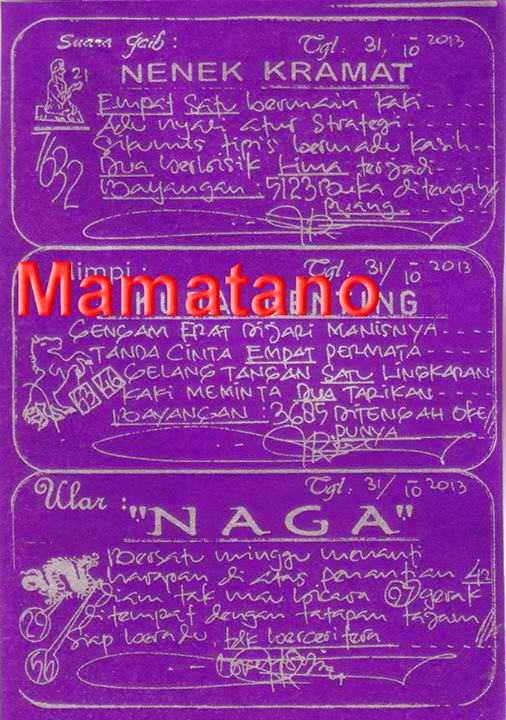 Suara Gaib : Tgl : 31, 10 2013
21 NENEK KRAMAT
Empat Satu bermain kaki
Adu nyali atur Strategi
tipis bermadu kasih
7632 Dua berbisik Lima terjadi
Bayangan : 5123 Buka ditengah/
Ruang
Mimpi : Tgl : 31/ 10 2013
Mamatano
KUDA NING
GENGAM ERAT DIJARI MANISNYA
TANDA CINTA EMPAT PERMATA
GELANG TANGAN SATU LINGKARAN
KAKI MEMINTA DUA TARIKAN
BAYANGAN : 3685 DITENGAH OKE/
PUNYA
Ular : Tgl : 31/ 10 2013
"NAGA"
Bersatu minggu menanti
harapan di atas penantian 42
Diam tak mau bicara 07 gerak
29 ditempat dengan tatapan tajam
Siap beradu tdk bercerita